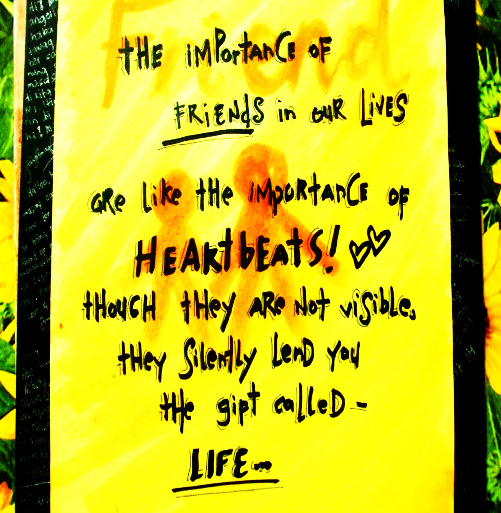 Friend
tHE iMPortanCE oF
FRiENdS in OUR LiVES
aRe like tHe iMPORtanCE of
HEARtbEAtS!
tHOUGH tHEy ARE Not viSible,
tHEy Silently lenD you
tHe gift calleD -
LIFE...